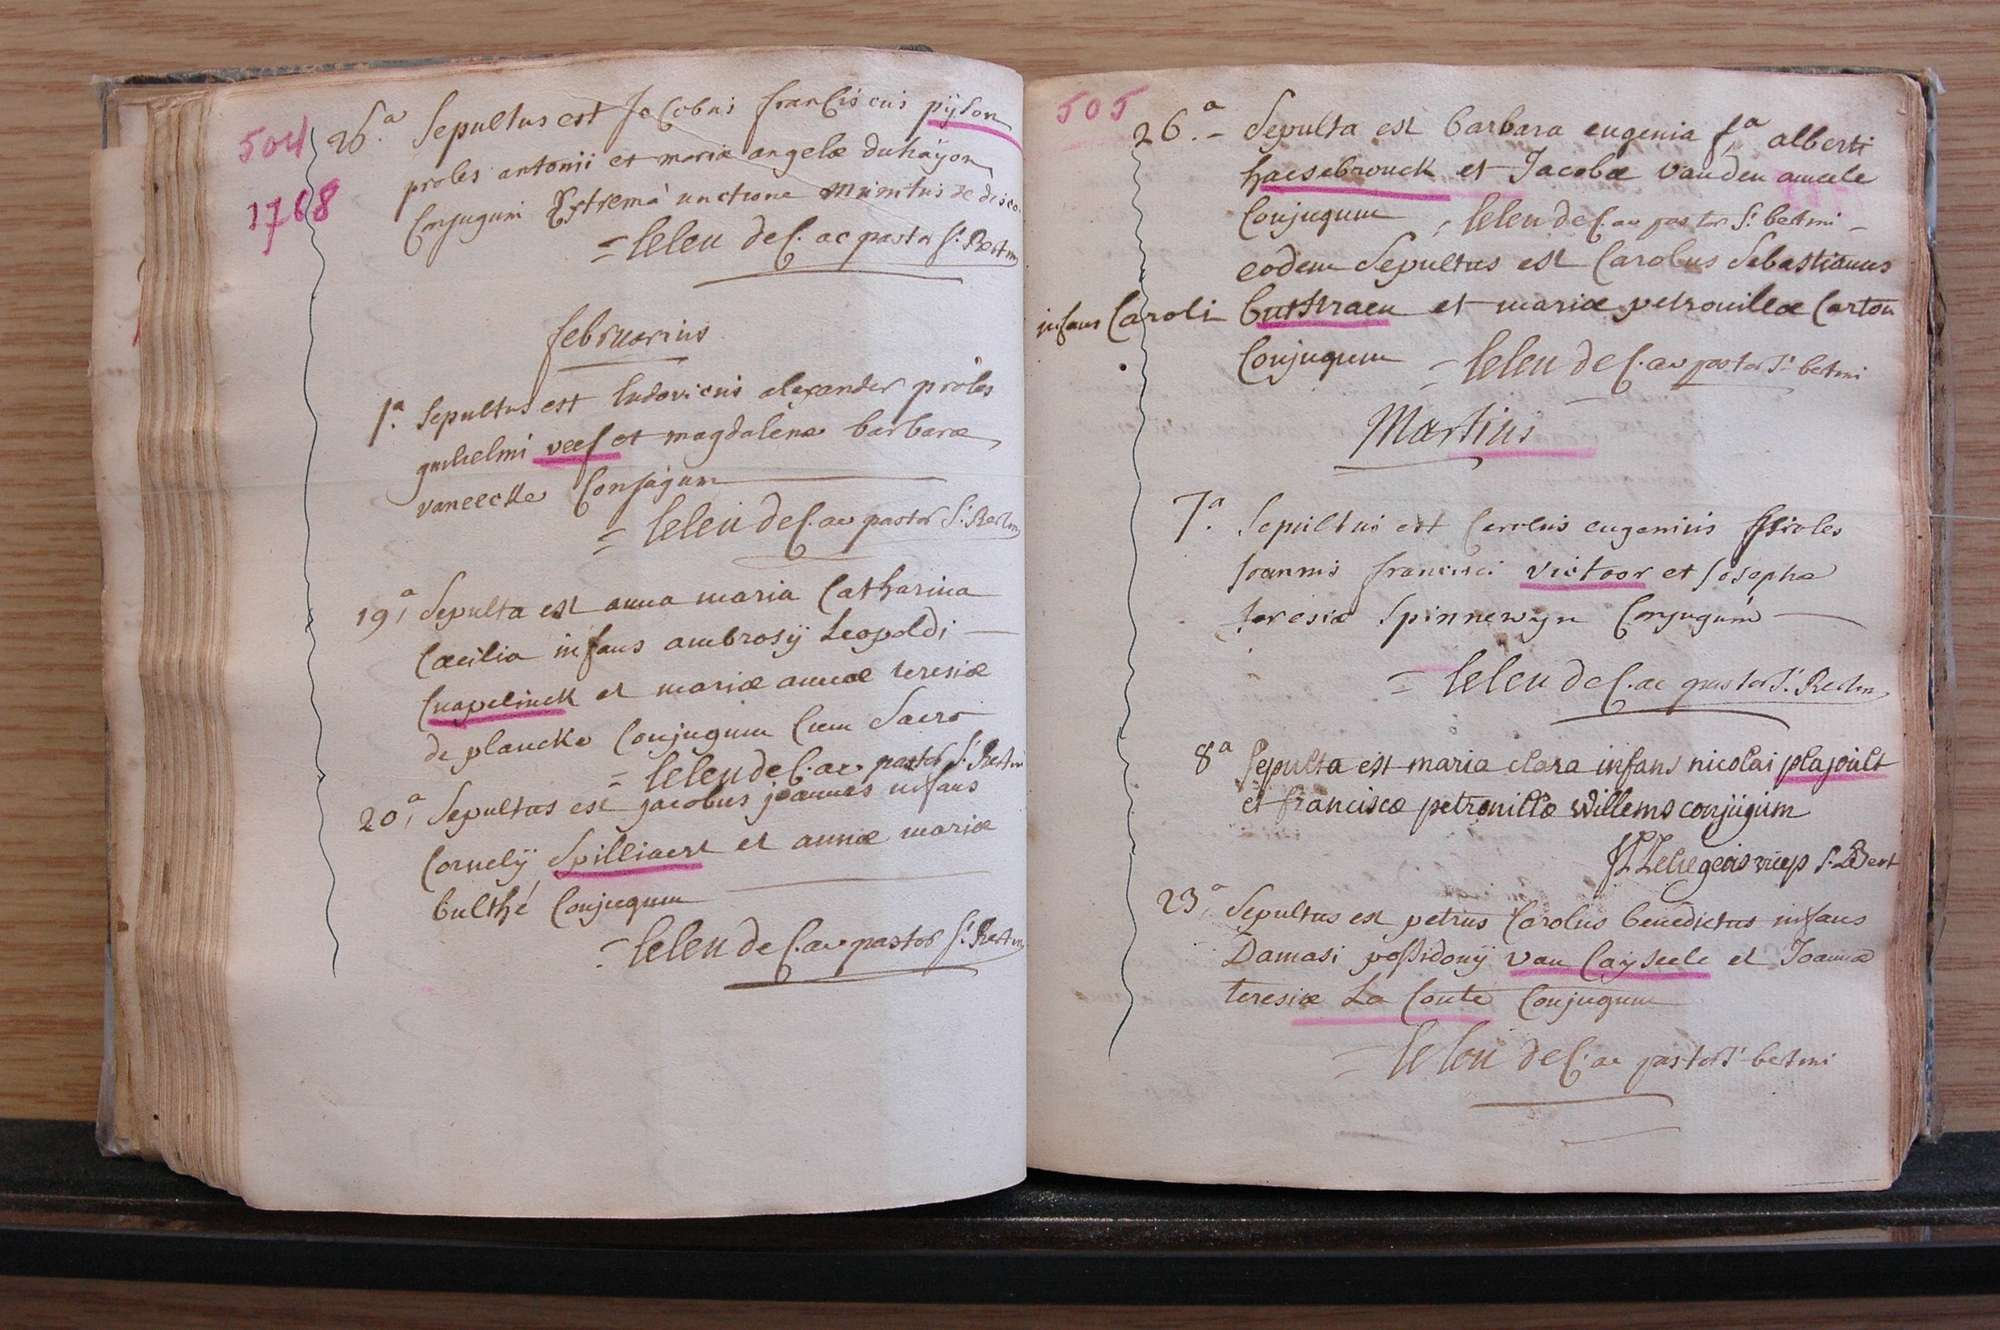 504
1768
26.a Sepultus est Jacobus franciscus pijson
proles antonii et mariæ angelæ duhayon
Conjugum Extremâ unctione munitus
= leleu de C. ac pastor St. Bertin
februarius
1.a Sepultus est ludovicus alexander proles
guilielmi veef et magdalenæ barbaræ
vaneecke Conjugum
= leleu de C. ac pastor St. Bertin
19a Sepulta est anna maria Catharina
Cæcilia infans ambrosij Leopoldi
Cnapelinck et mariæ annæ teresiæ
de plancke Conjugum Cum Sacro
= leleu de C. ac pastor St. Bertin
20a Sepultus est jacobus joannes infans
Cornelij Spilliaert et annæ mariæ
bulthé Conjugum
= leleu de C. ac pastor St. Bertin
505
26.a - Sepulta est barbara eugenia fa alberti
haesebrouck et Jacobæ vanden ameele
Conjugum leleu de C. ac pastor St. bertini
eodem Sepultus est Carolus Sebastianus
infans Caroli buttstraen et mariæ petronillæ Carton
Conjugum = leleu de C. ac pastor St. bertini
Martius
7.a Sepultus est Carolus eugenius proles
Joannis francisci victoor et Josephæ
teresiæ Spinnewyn Conjugum
= leleu de C. ac pastor St. Bertin
8a Sepulta est maria clara infans nicolai plajoult
et franciscæ petronillæ willems conjugum
Leliegeois vicep St. Bert
23a Sepultus est petrus Carolus benedictus infans
Damasi possidonij van Cayseele et Joannæ
teresiæ La Conte Conjugum
= leleu de C. ac pastor St. bertini